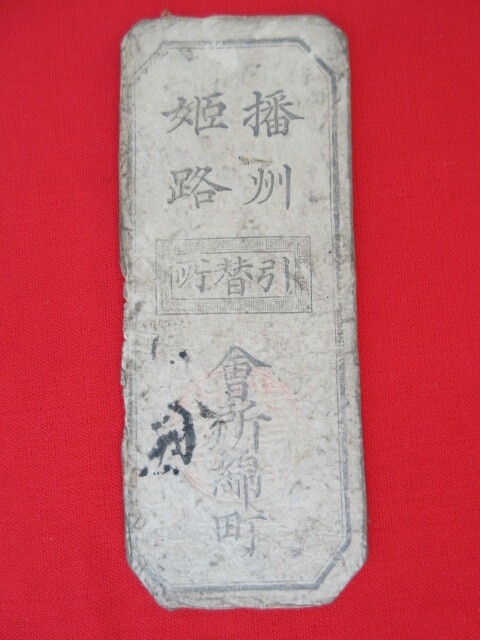 播州
姫路
引替所
會所綿町